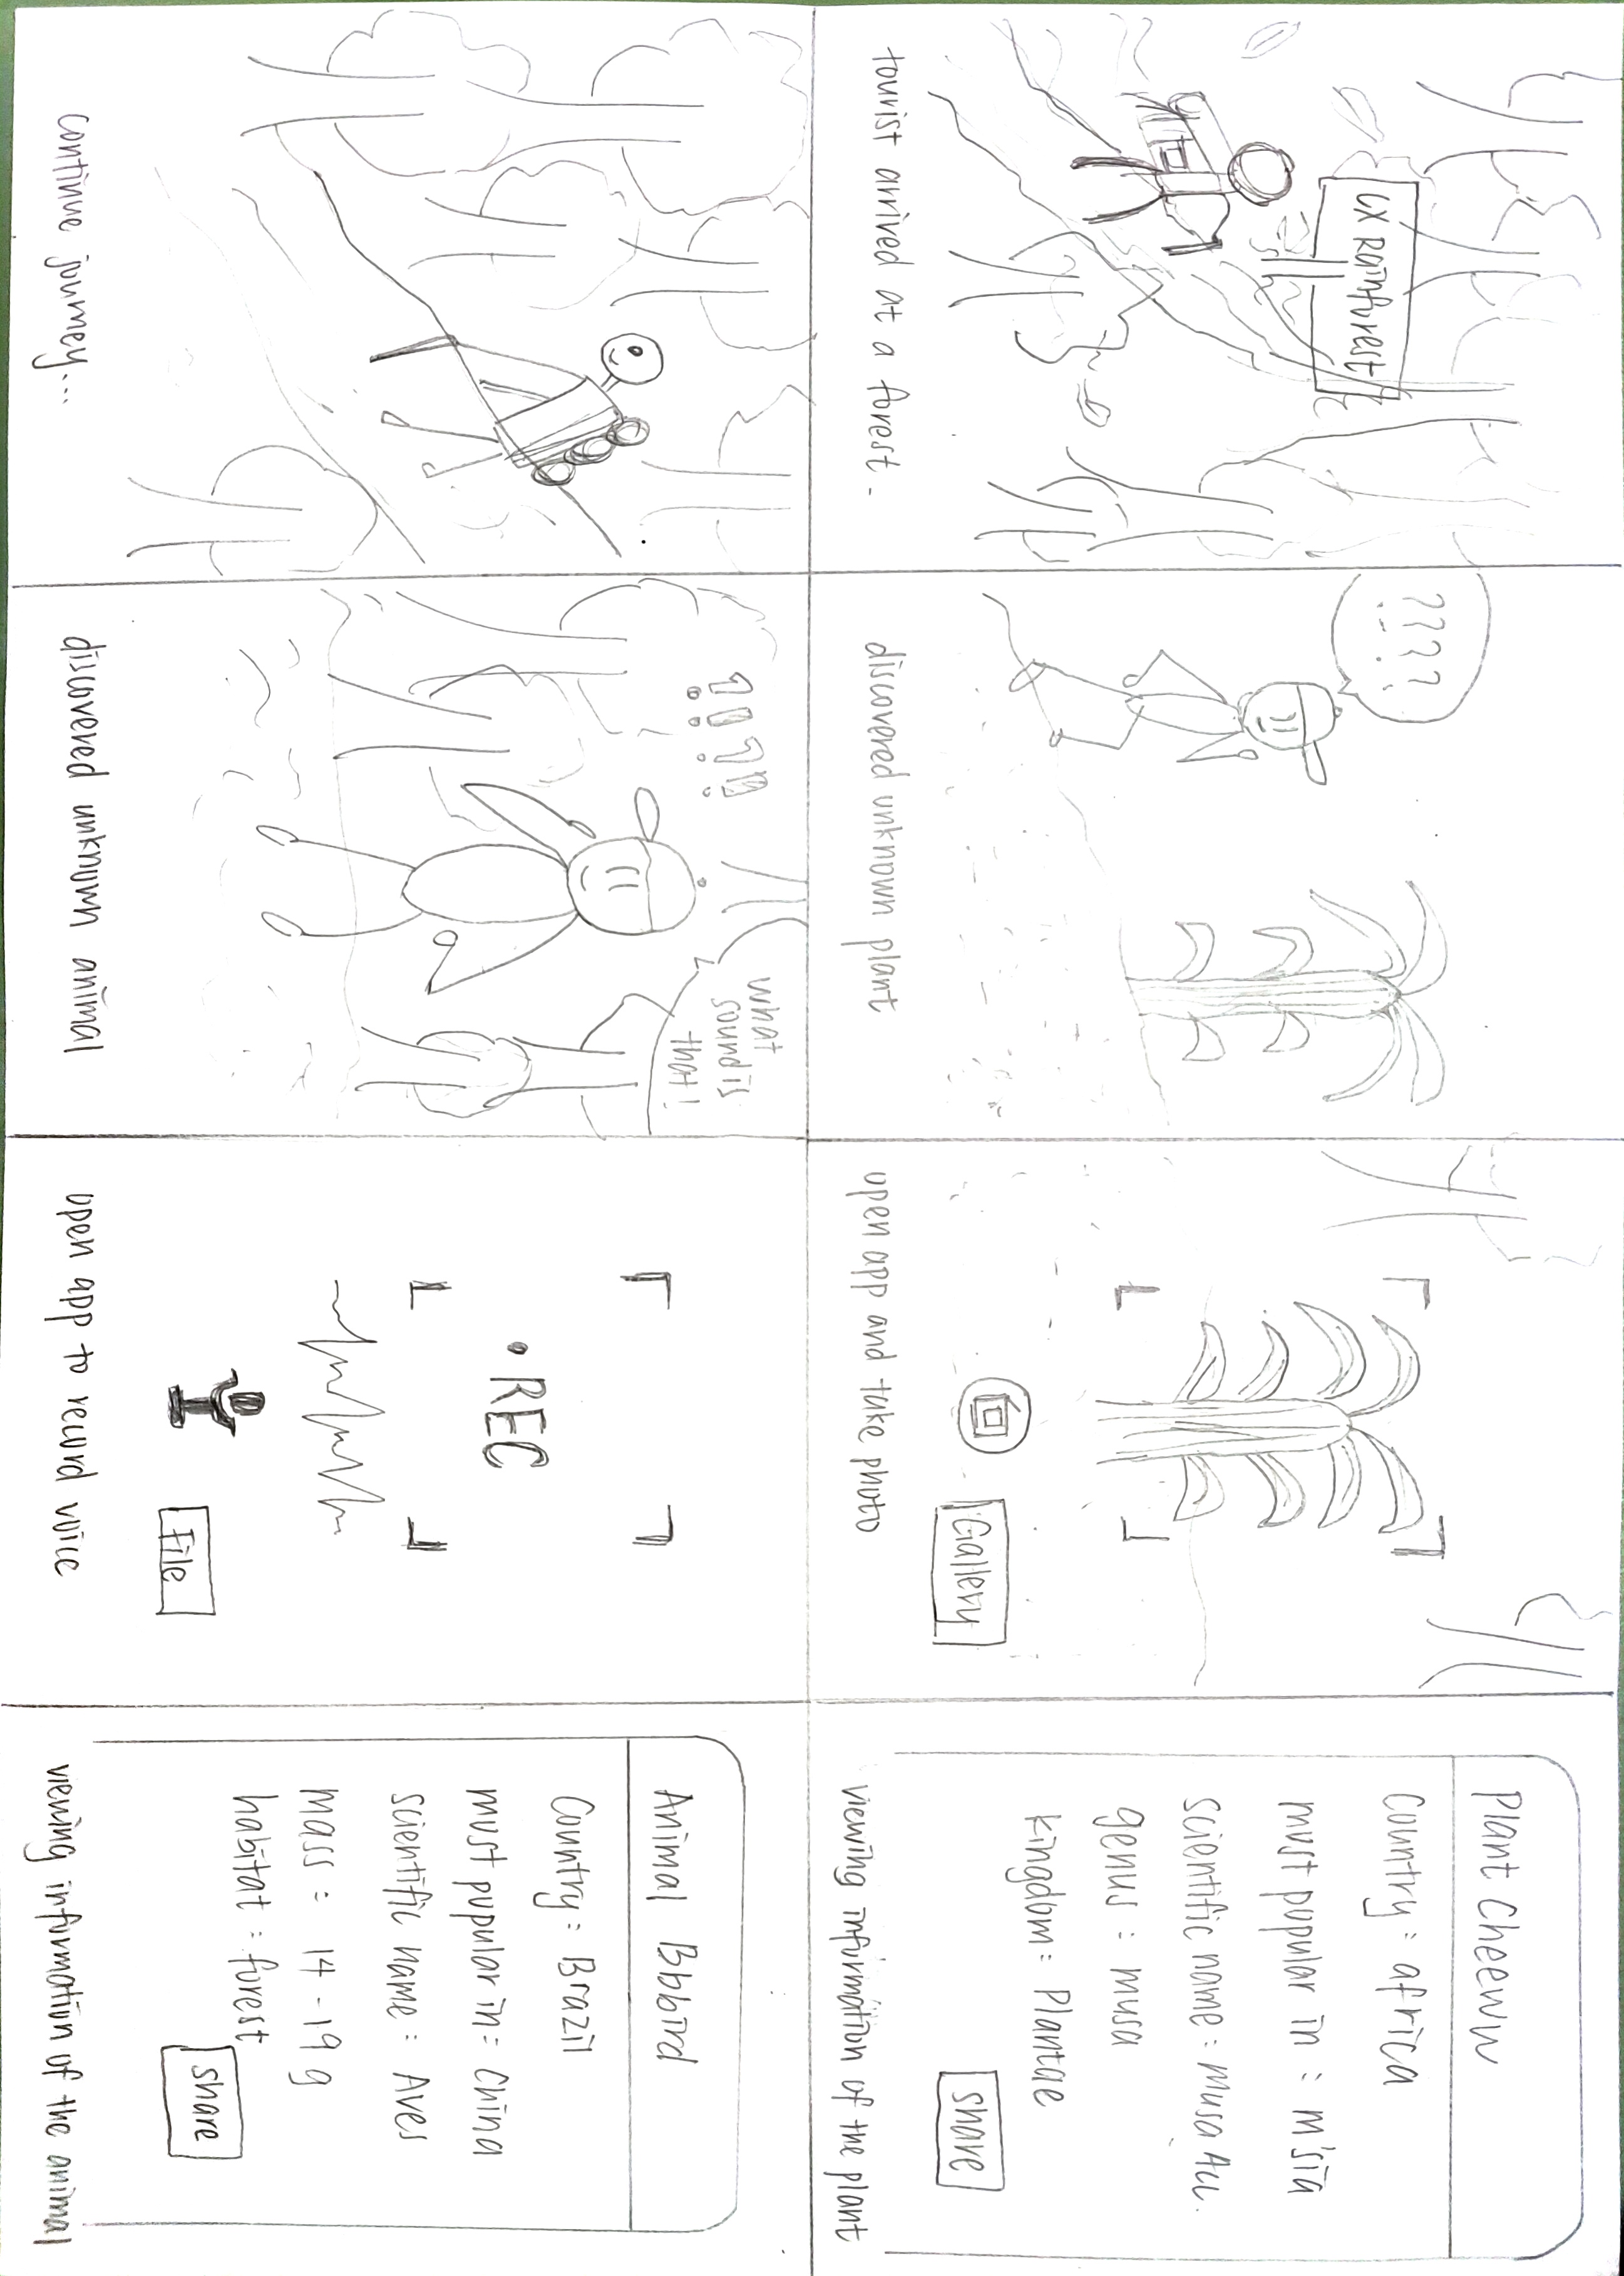 CX Rainforest
tourist arrived at a forest.
????
discovered unknown plant
Gallery
open app and take photo
Plant Cheeww
Country : africa
most popular in : m'sia
scientific name : Musa Acc.
genus : musa
kingdom : Plantae
share
viewing information of the plant
continue journey...
?!?!
what
sound is
that!
discovered unknown animal
• REC
File
open app to record voice
Animal Bbbird
Country : Brazil
most popular in : China
scientific name : Aves
mass : 14 - 19 g
habitat : forest
share
viewing information of the animal